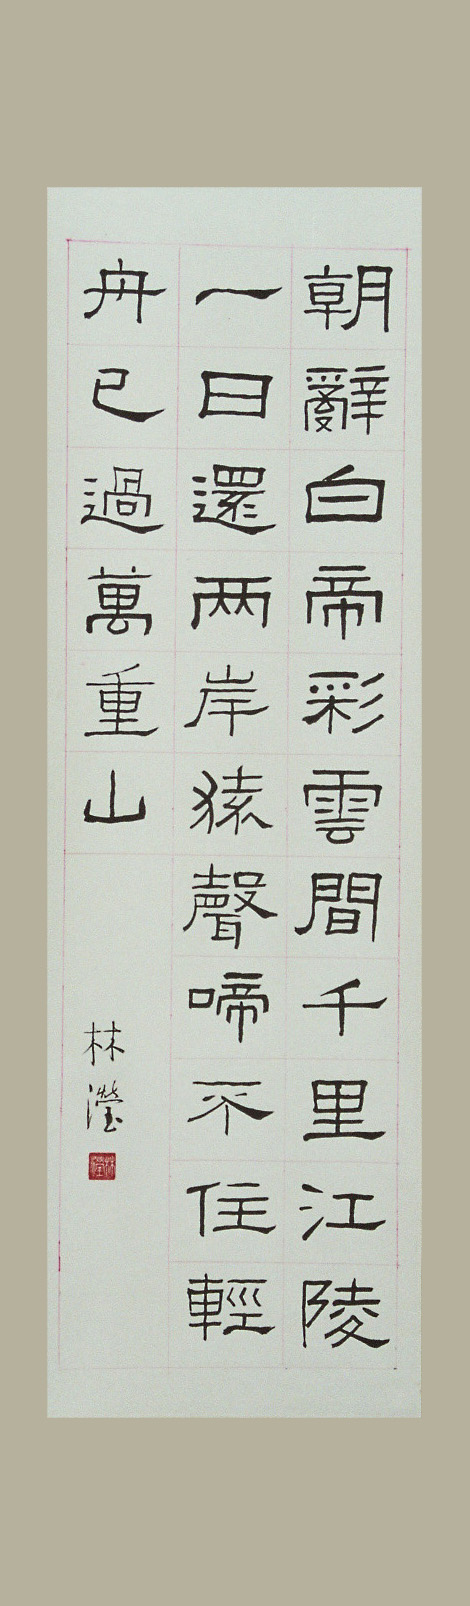 朝辭白帝彩雲間千里江陵
一日還两岸猿聲啼不住輕
舟已過萬重山
林瀅